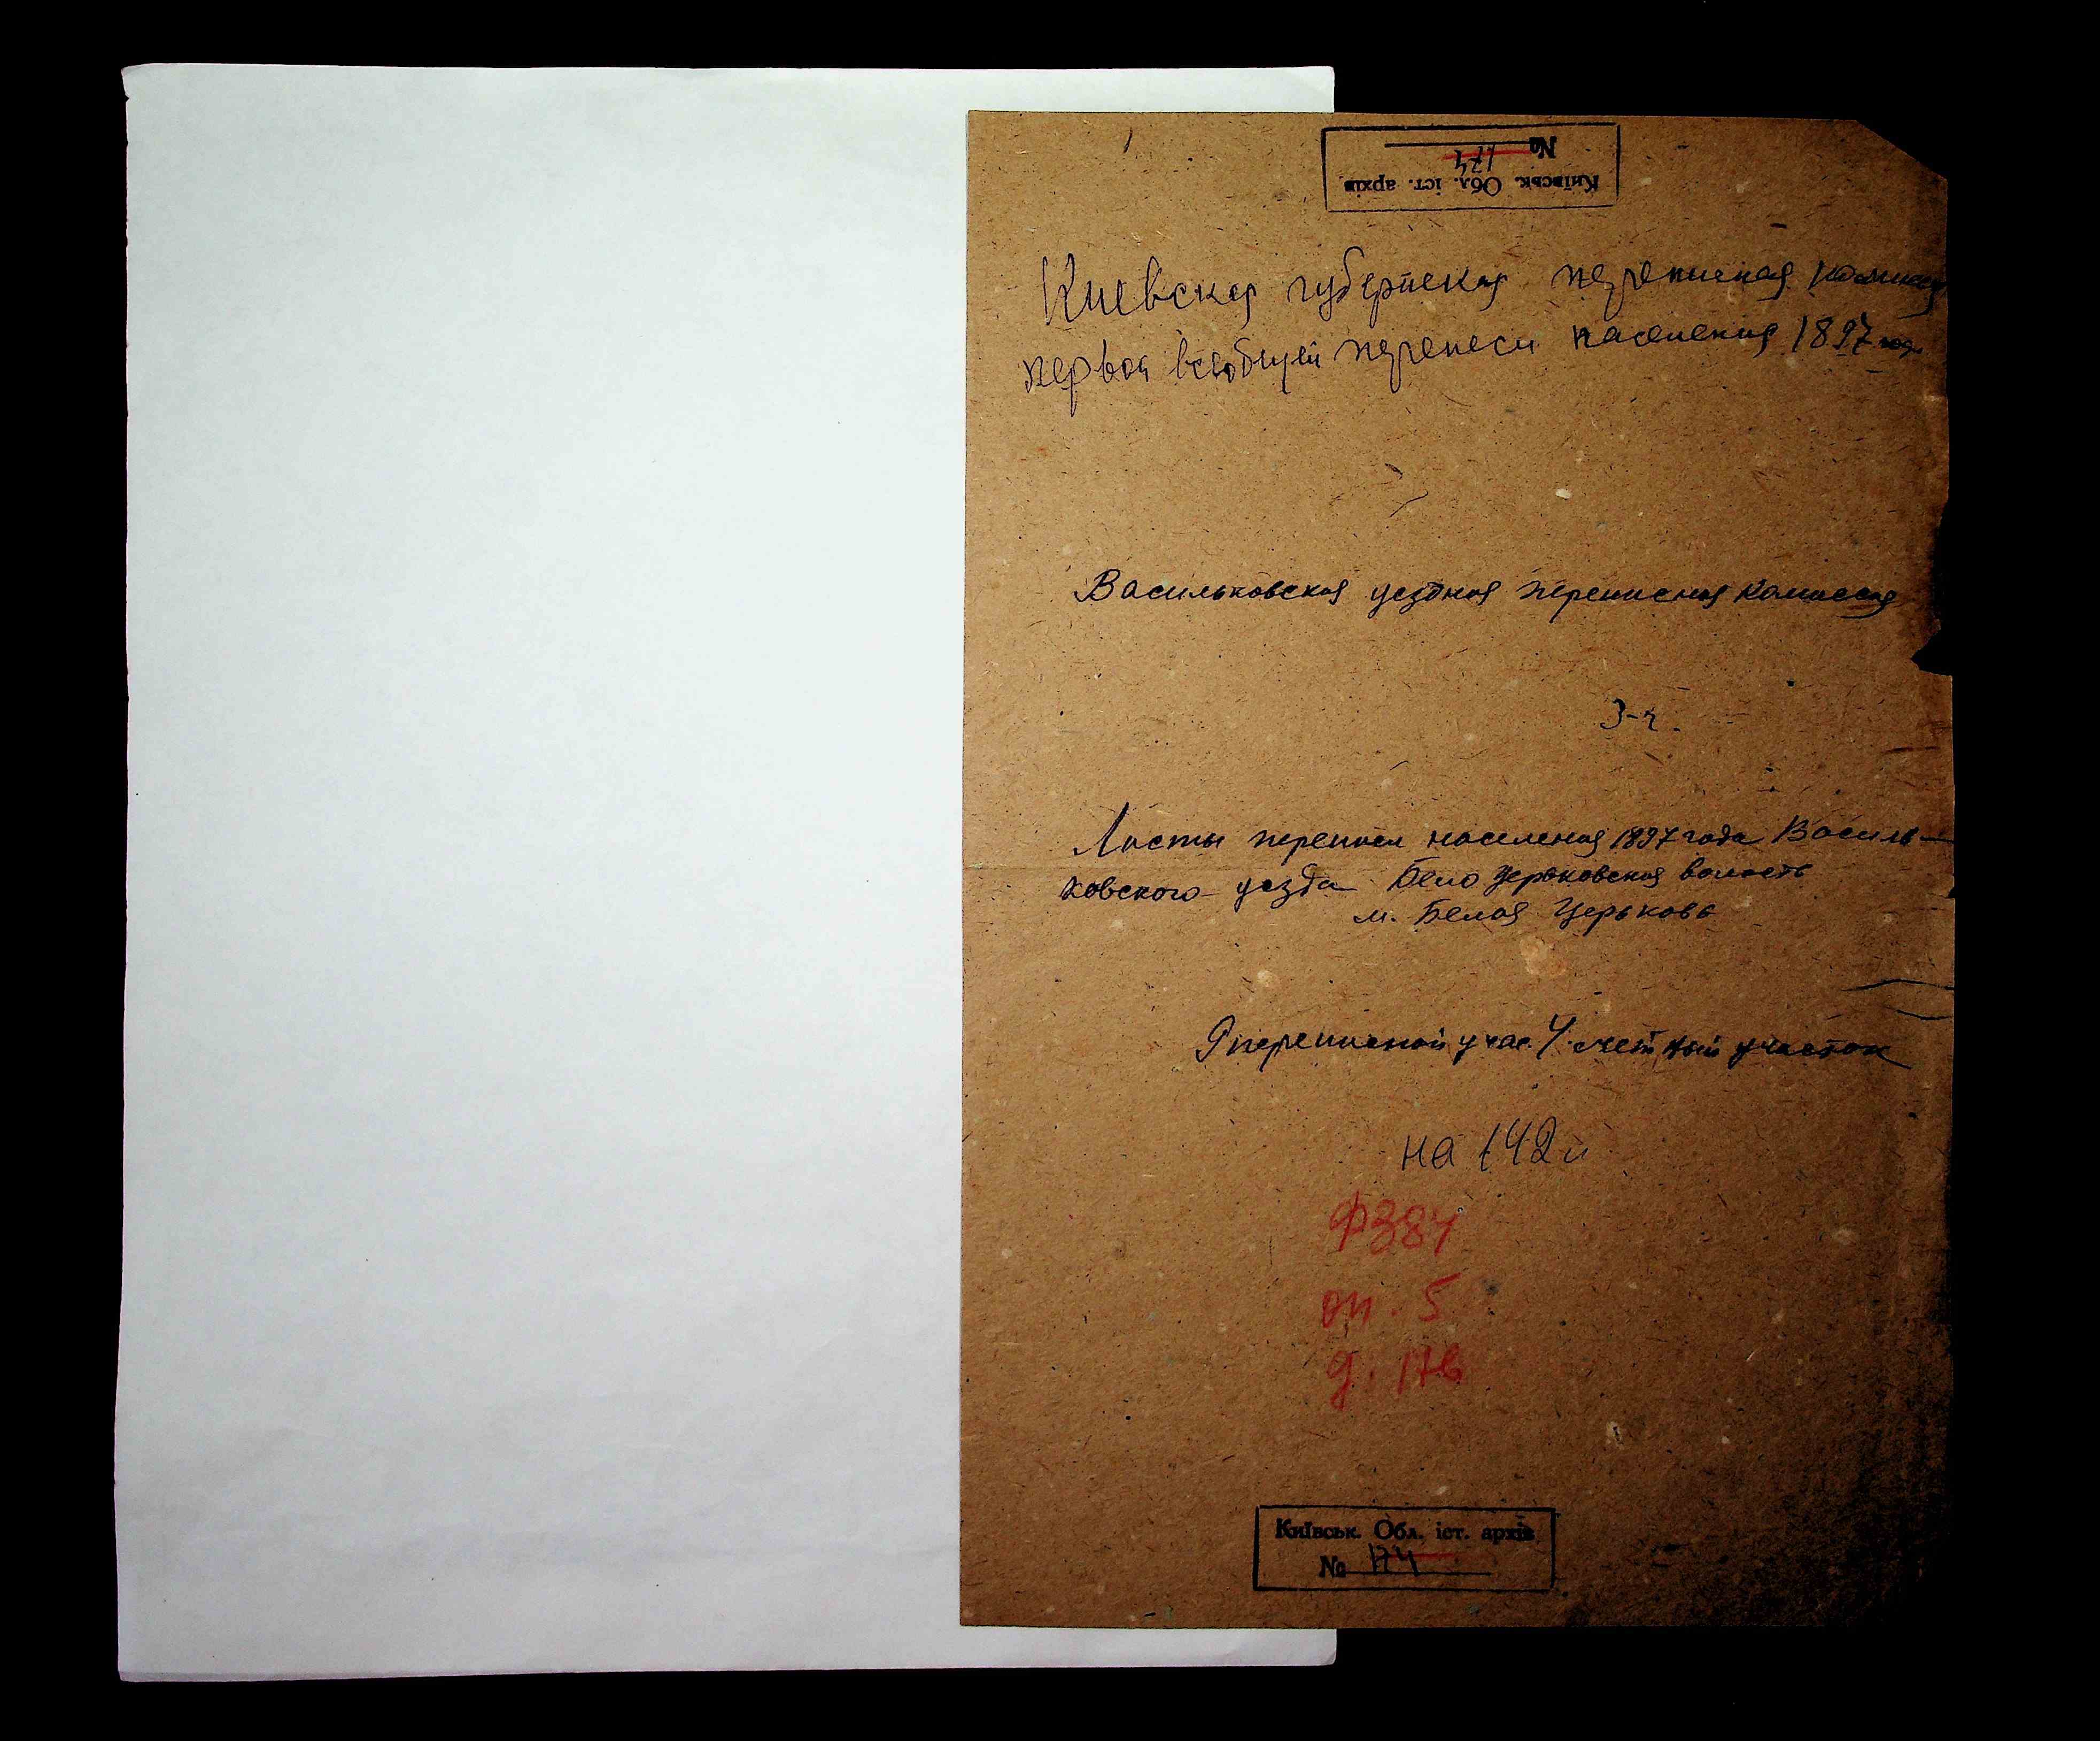 Київськ. Обл. іст. архів
№ 174
Киевская губернская переписная комисия
первой всеобщей переписи населения 1897 года
Васильковская уездная переписная комиссия
3-ч.
Листы переписи населения 1897 года Василь-
ковского уезда Бело Церковская волость
м. Белая Церьковь
9 переписной учас. 4 счетный участок
на 142 л
Ф 384
оп. 5
д. 176
Київськ. Обл. іст. архів
№ 174